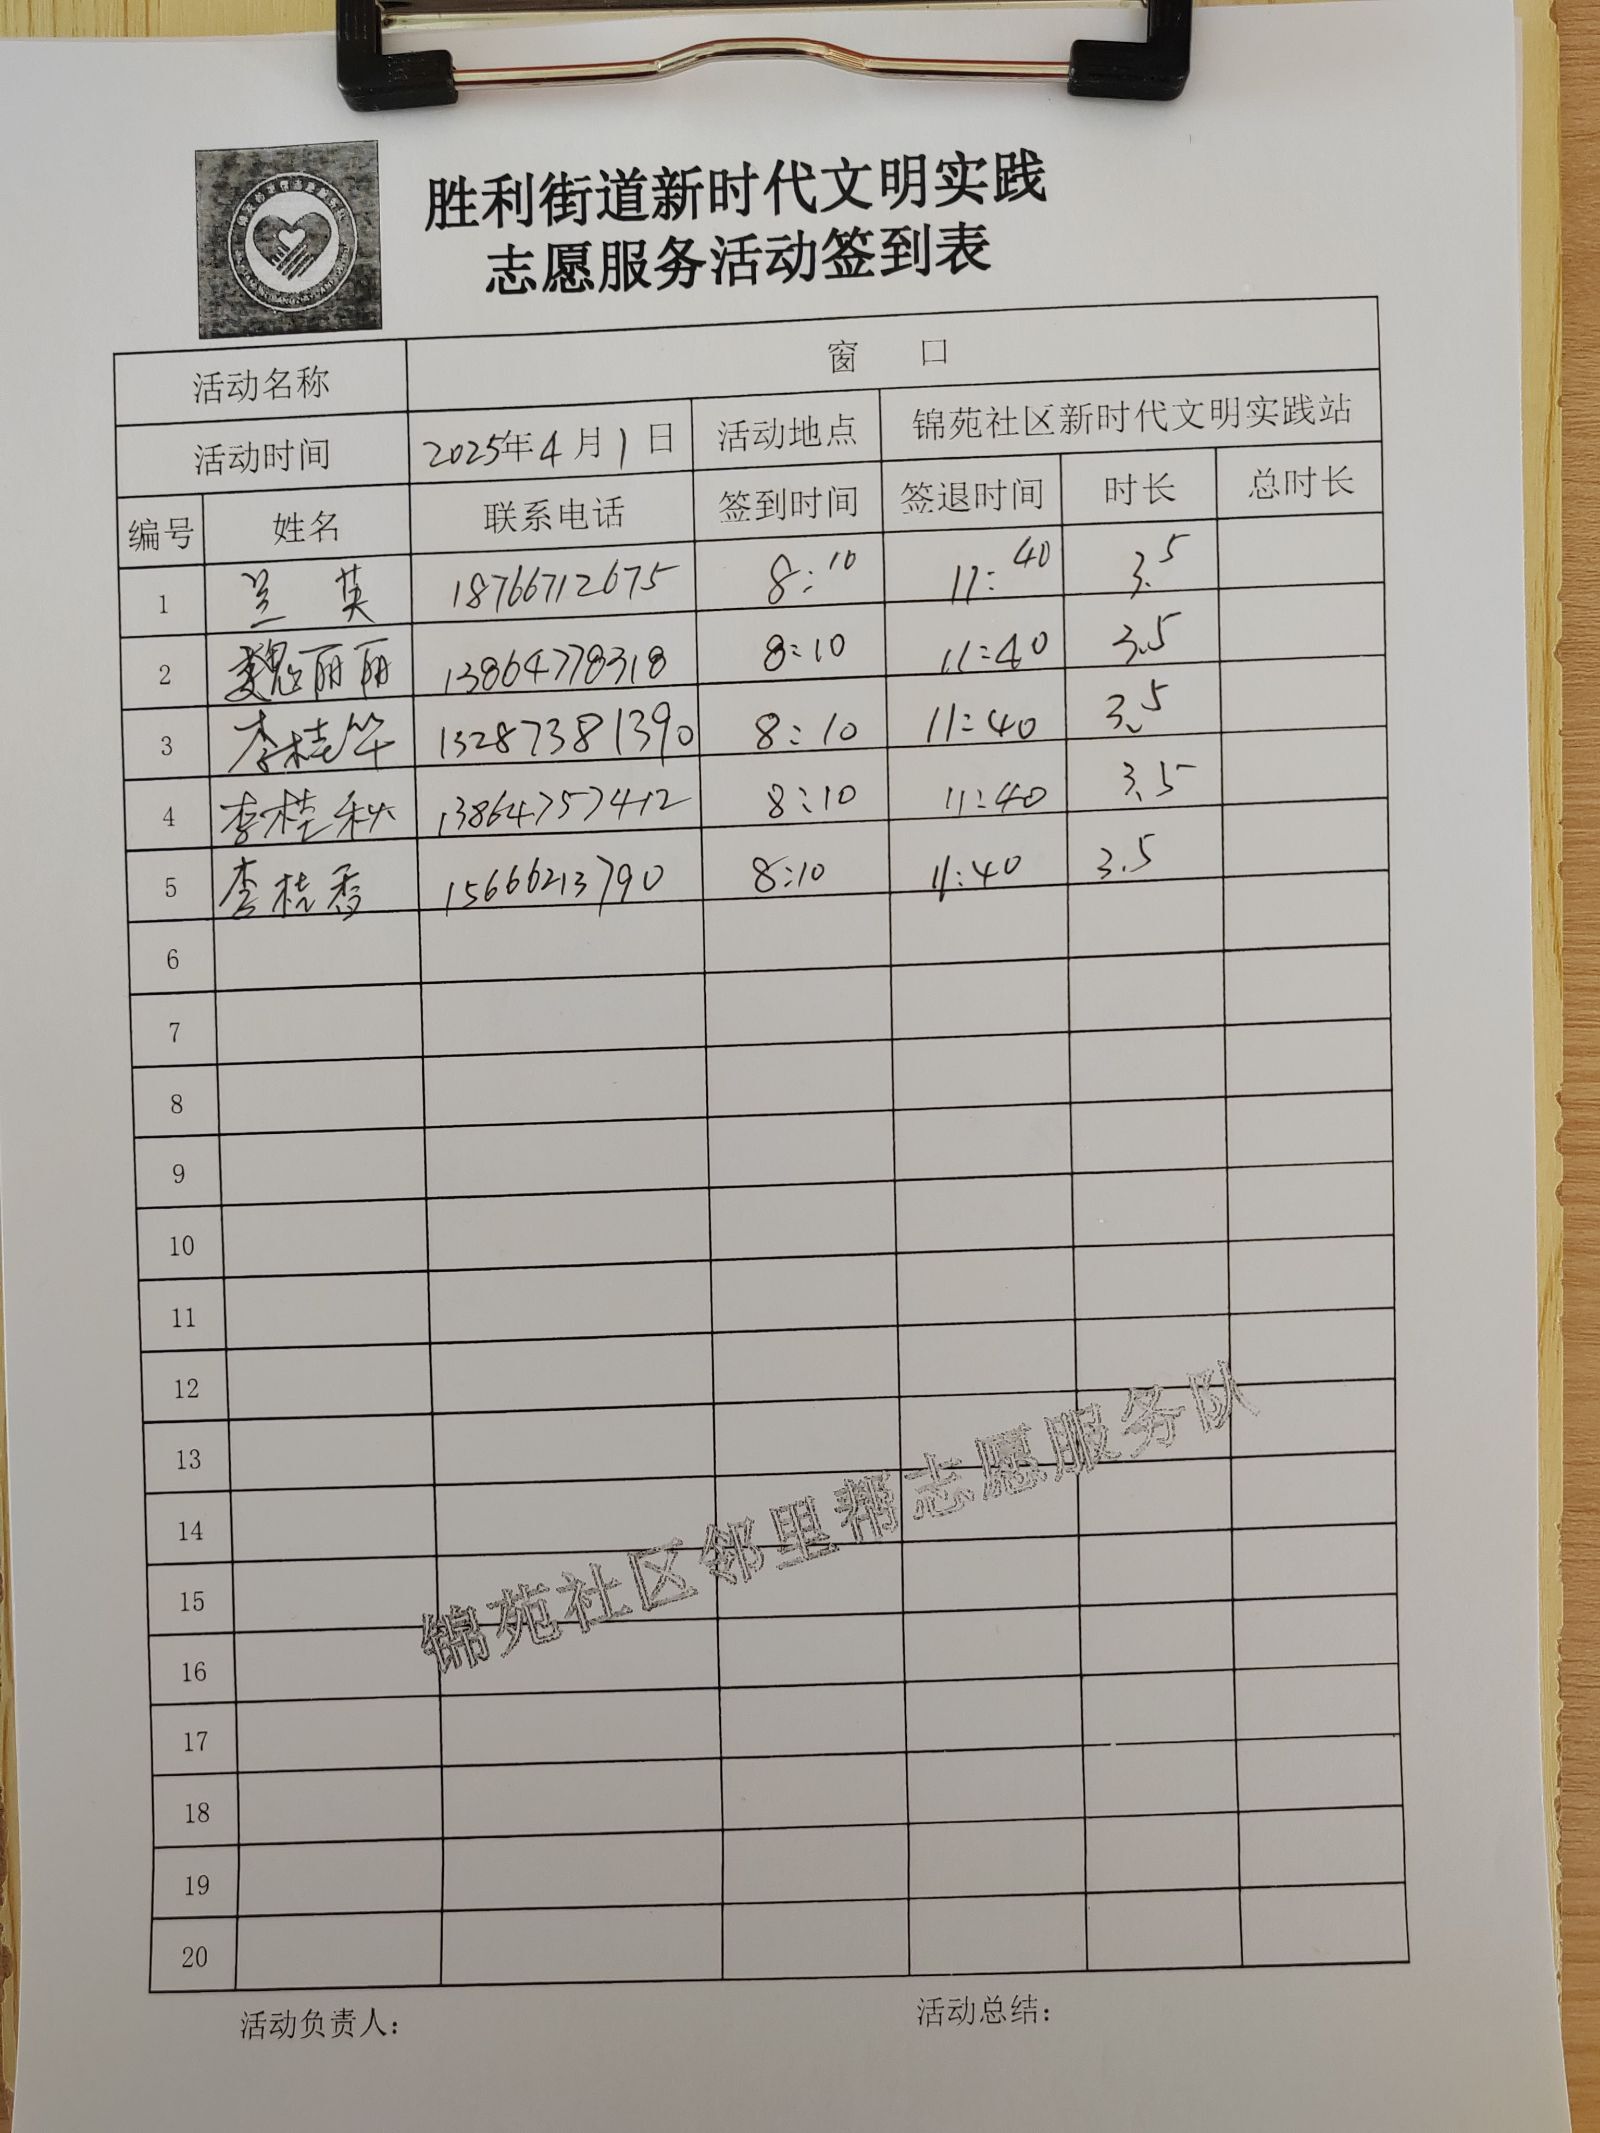 胜利街道新时代文明实践
志愿服务活动签到表
活动名称 窗 口
活动时间 2025年4月1日 活动地点 锦苑社区新时代文明实践站
编号 姓名 联系电话 签到时间 签退时间 时长 总时长
1 兰英 18766712675 8:10 11:40 3.5
2 魏丽丽 13864778318 8:10 11:40 3.5
3 李桂华 13287381390 8:10 11:40 3.5
4 李桂秋 13864757412 8:10 11:40 3.5
5 李桂香 15666213790 8:10 11:40 3.5
6
7
8
9
10
11
12
13
14
15
16
17
18
19
20
锦苑社区邻里帮志愿服务队
活动负责人：
活动总结：